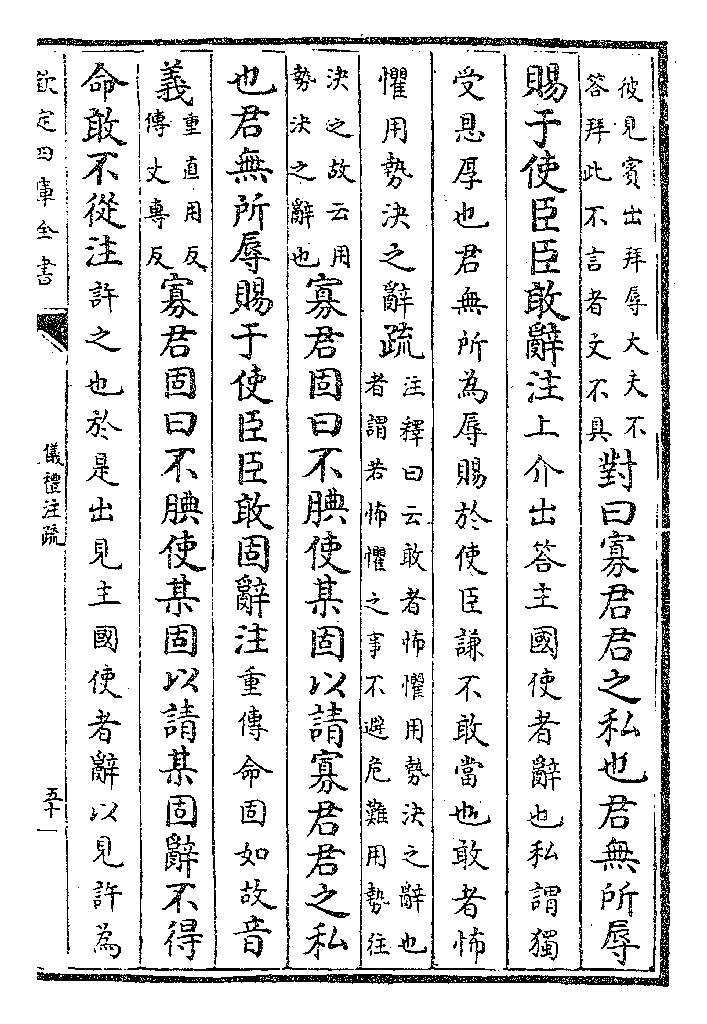 彼見賓出拜辱大夫不
答拜此不言者文不具
對曰寡君君之私也君無所辱
賜于使臣臣敢辭注上介出答主國使者辭也私謂獨
受恩厚也君無所為辱賜於使臣謙不敢當也敢者怖
懼用勢決之辭疏
注釋曰云敢者怖懼用勢決之辭也
者謂若怖懼之事不避危難用勢往
決之故云用
勢決之辭也
寡君固曰不腆使某固以請寡君君之私
也君無所辱賜于使臣臣敢固辭注重傳命固如故音
義
重直用反
傳丈專反
寡君固曰不腆使某固以請某固辭不得
命敢不從注許之也於是出見主國使者辭以見許為
欽定四庫全書
儀禮注疏
五十一